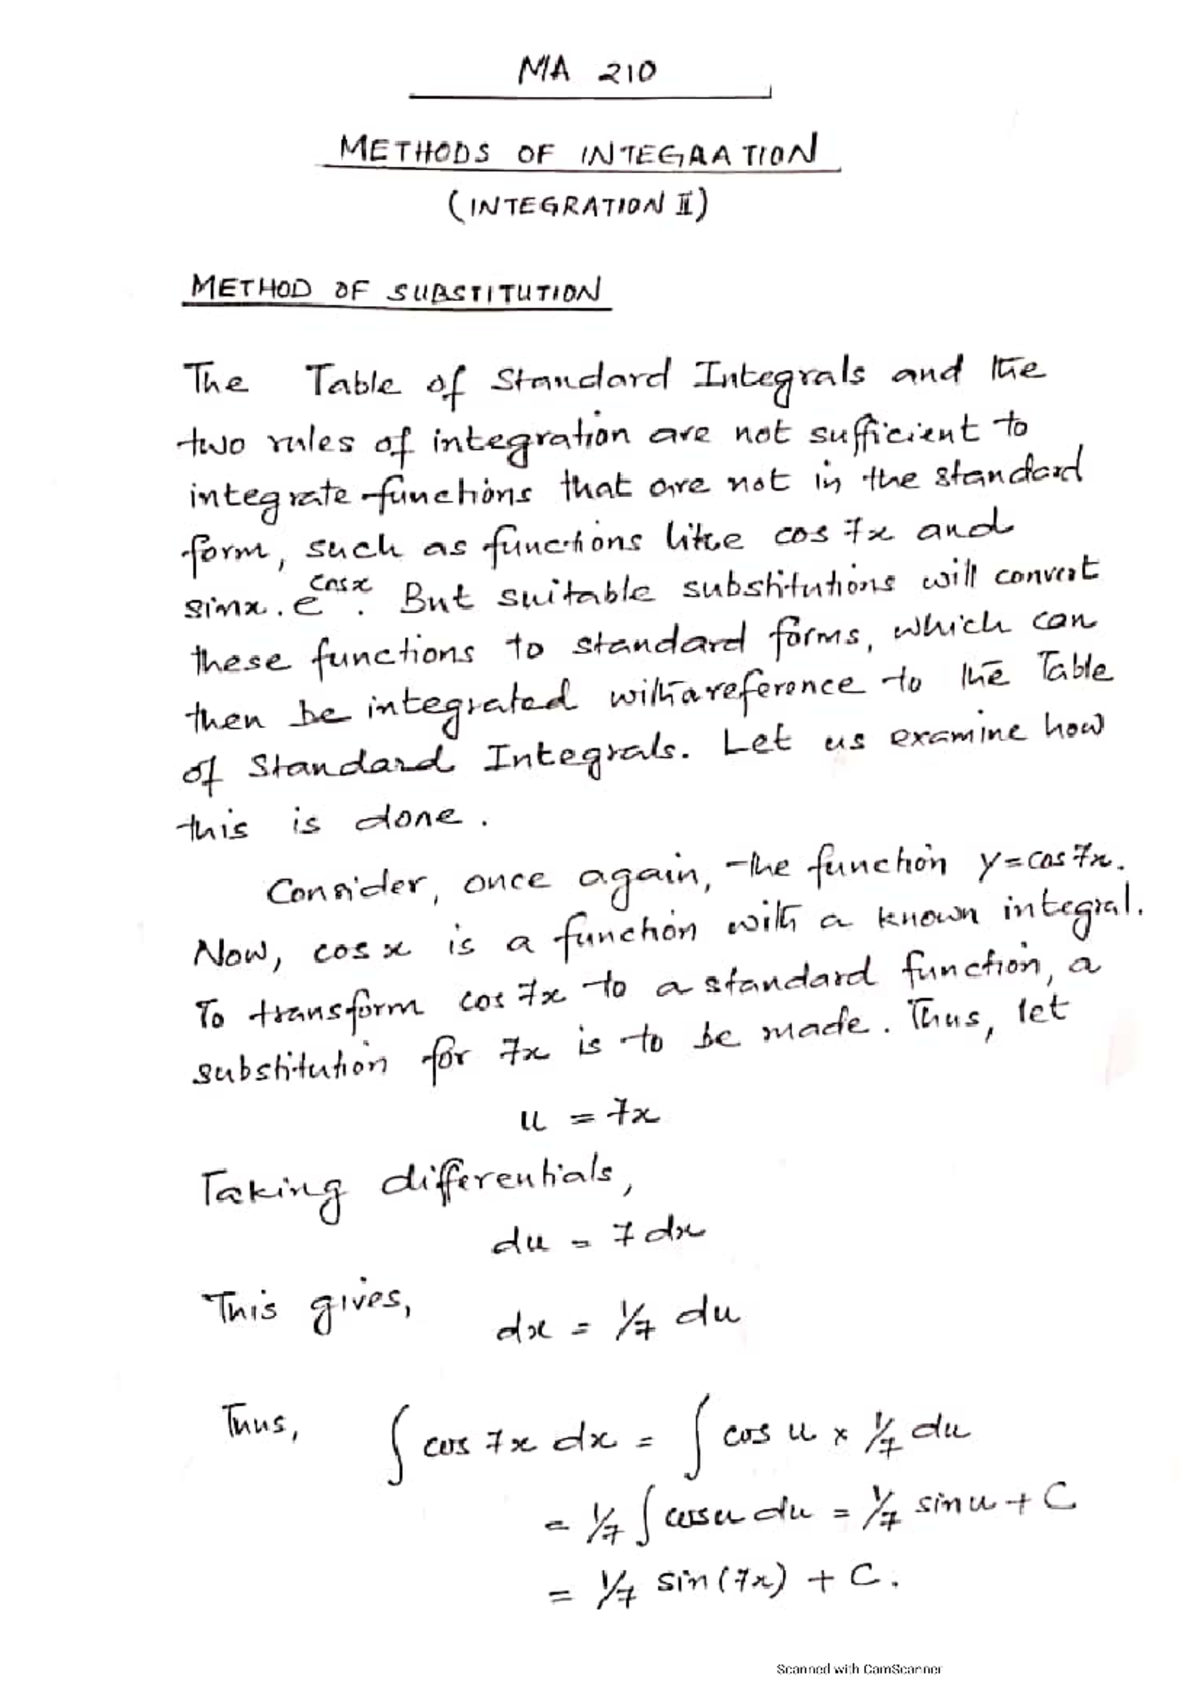 MA 210
METHODS OF INTEGRATION
(INTEGRATION II)
METHOD OF SUBSTITUTION
The Table of Standard Integrals and the
two rules of integration are not sufficient to
integrate functions that are not in the standard
form, such as functions like cos 7x and
sinx . e^cosx. But suitable substitutions will convert
these functions to standard forms, which can
then be integrated with a reference to the Table
of Standard Integrals. Let us examine how
this is done.
Consider, once again, the function y=cos 7x.
Now, cos x is a function with a known integral.
To transform cos 7x to a standard function, a
substitution for 7x is to be made. Thus, let
u = 7x
Taking differentials,
du = 7 dx
This gives, dx = 1/7 du
Thus, ∫ cos 7x dx = ∫ cos u × 1/7 du
= 1/7 ∫ cos u du = 1/7 sin u + C
= 1/7 sin (7x) + C.
Scanned with CamScanner